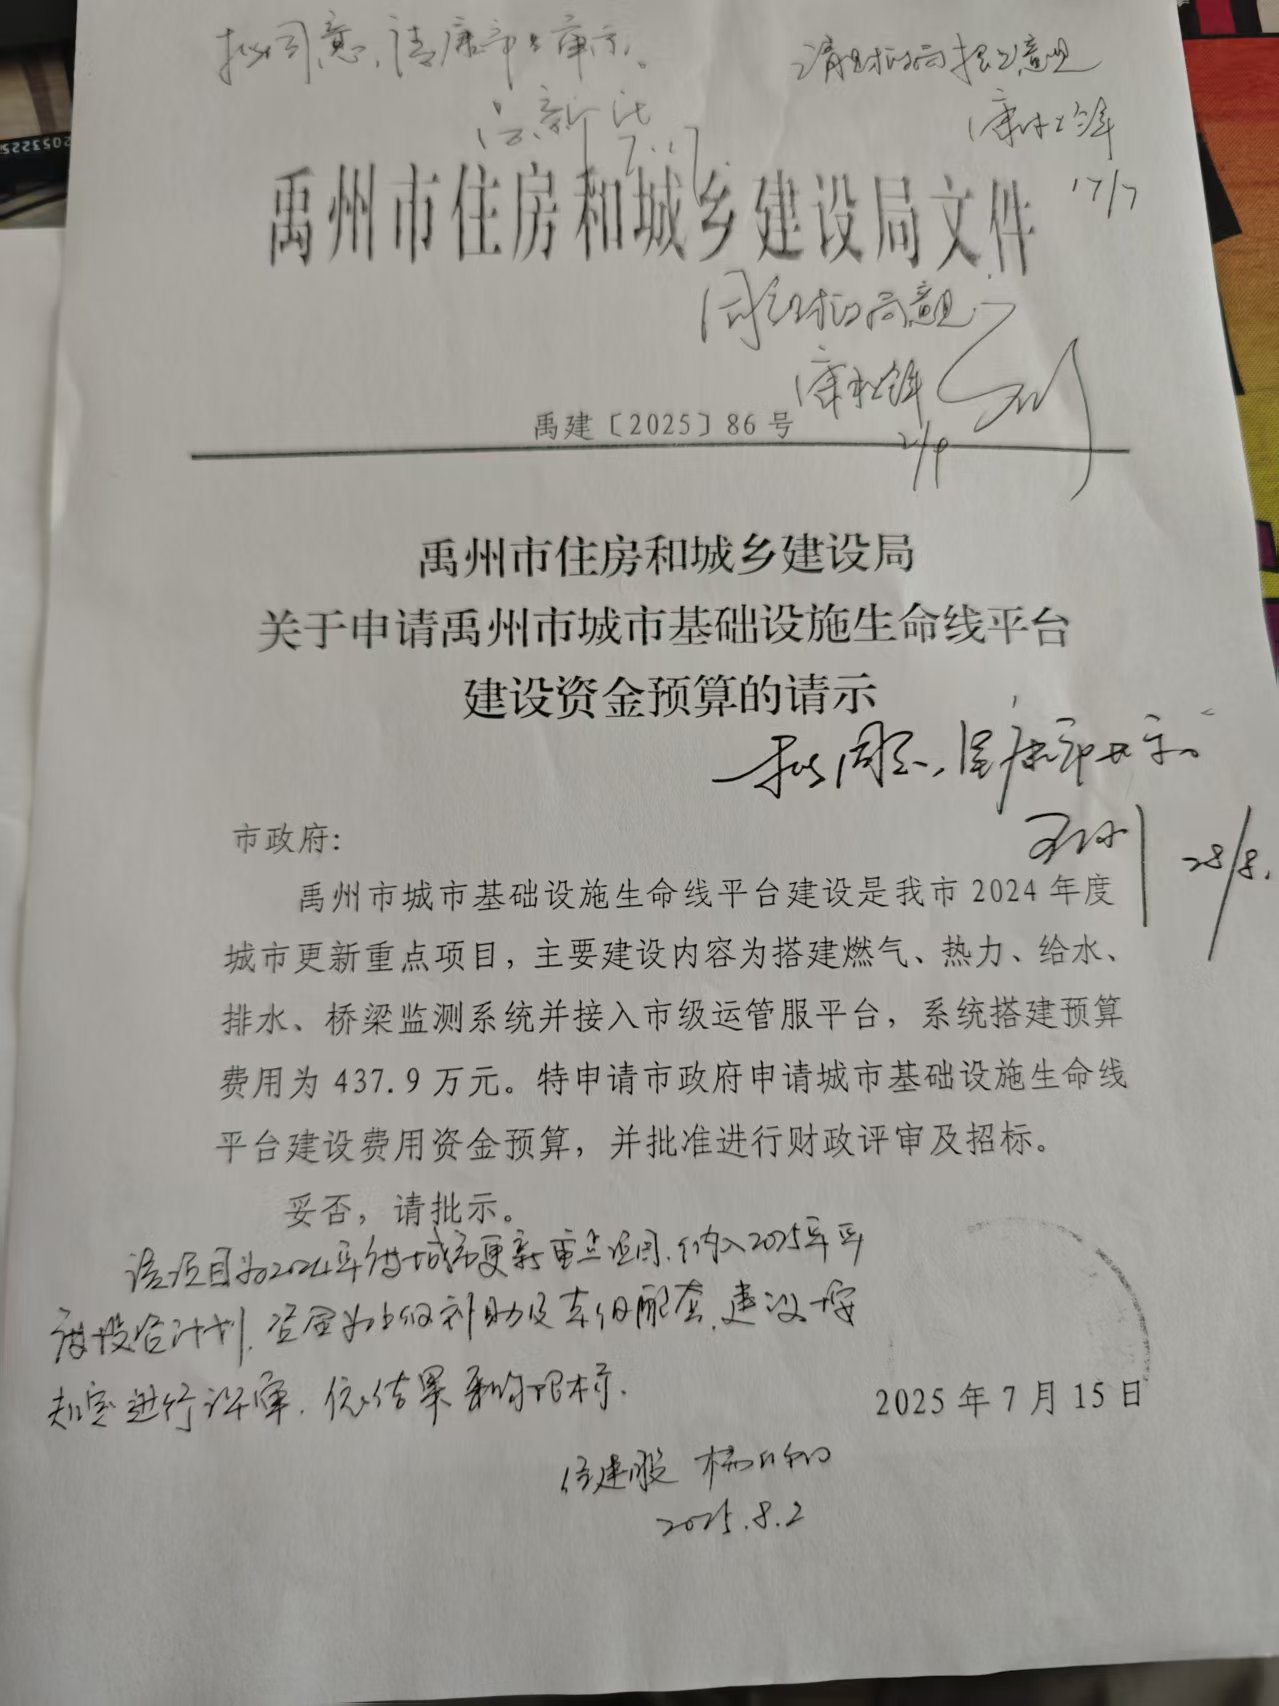 拟同意,请康市长审示。
请财政局提出意见
17/7
7.17
禹州市住房和城乡建设局文件
同财政局意见
禹建〔2025〕86号
2/9
禹州市住房和城乡建设局
关于申请禹州市城市基础设施生命线平台
建设资金预算的请示
拟同意,呈康市长示。
28/8.
市政府:
禹州市城市基础设施生命线平台建设是我市2024年度
城市更新重点项目，主要建设内容为搭建燃气、热力、给水、
排水、桥梁监测系统并接入市级运管服平台，系统搭建预算
费用为437.9万元。特申请市政府申请城市基础设施生命线
平台建设费用资金预算，并批准进行财政评审及招标。
妥否，请批示。
该项目为2024年度城市更新重点项目,纳入2025年年
度投资计划,资金为上级补助及本级配套,建议按
规定进行评审,依结果 招标.
2025年7月15日
2025.8.2